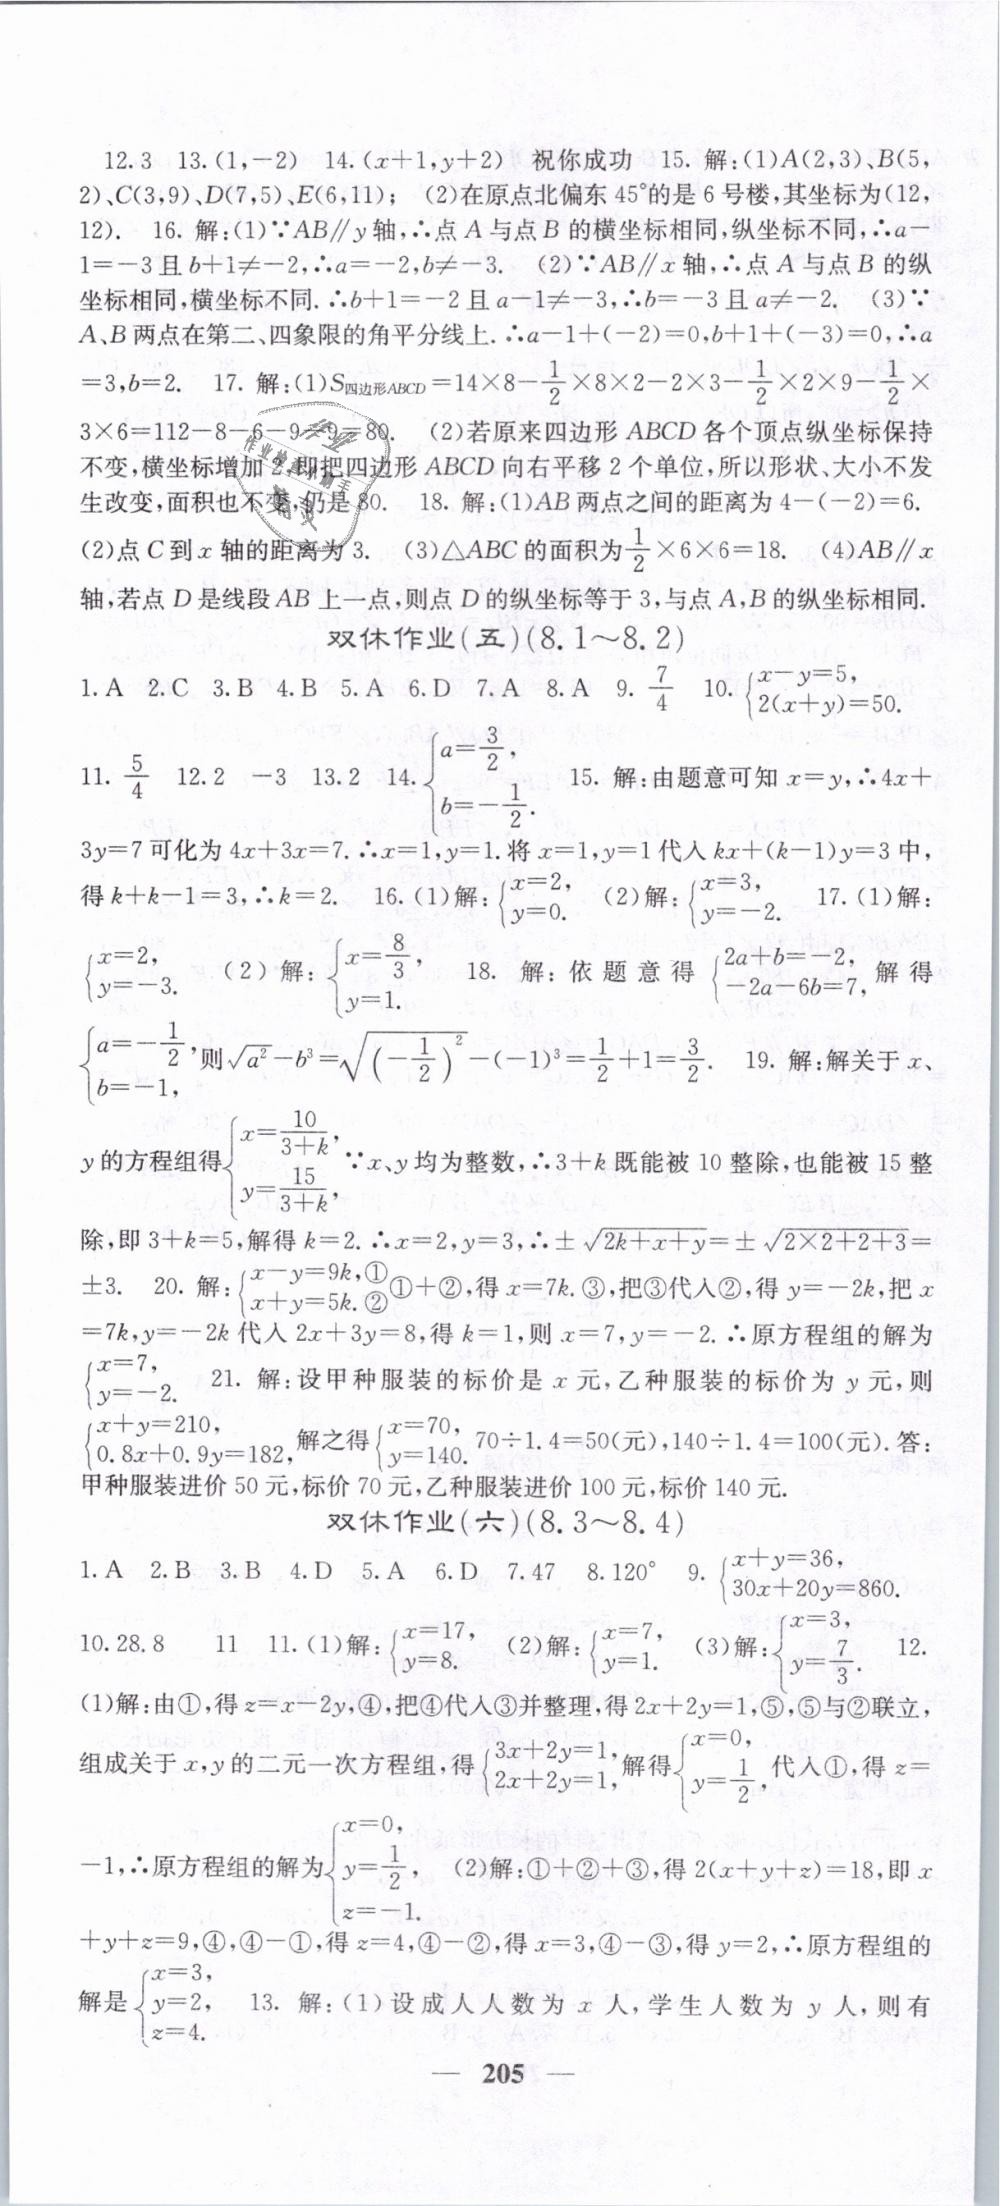 12.3　13.(1,-2)　14.(x+1,y+2)　祝你成功　15. 解:(1)A(2,3)、B(5,
2)、C(3,9)、D(7,5)、E(6,11);　(2)在原点北偏东 45°的是 6 号楼,其坐标为(12,
12).　16. 解:(1)∵AB∥y 轴,∴点 A 与点 B 的横坐标相同,纵坐标不同,∴a-
1=-3 且 b+1≠-2,∴a=-2,b≠-3.　(2)∵AB∥x 轴,∴点 A 与点 B 的纵
坐标相同,横坐标不同.∴b+1=-2 且 a-1≠-3,∴b=-3 且 a≠-2.　(3)∵
A、B 两点在第二、四象限的角平分线上.∴a-1+(-2)=0,b+1+(-3)=0,∴a
=3,b=2.　17. 解:(1)S四边形ABCD=14×8-1/2×8×2-2×3-1/2×2×9-1/2×
3×6=112-8-6-9-9=80.　(2)若原来四边形 ABCD 各个顶点纵坐标保持
不变,横坐标增加 2,即把四边形 ABCD 向右平移 2 个单位,所以形状、大小不发
生改变,面积也不变,仍是 80.　18. 解:(1)AB 两点之间的距离为 4-(-2)=6.
(2)点 C 到 x 轴的距离为 3.　(3)△ABC 的面积为 1/2×6×6=18.　(4)AB∥x
轴,若点 D 是线段 AB 上一点,则点 D 的纵坐标等于 3,与点 A,B 的纵坐标相同.
双休作业(五)(8.1～8.2)
1. A　2. C　3. B　4. B　5. A　6. D　7. A　8. A　9. 7/4　10. {x-y=5, 2(x+y)=50.
11. 5/4　12.2　-3　13.2　14. {a=3/2, b=-1/2.　15. 解:由题意可知 x=y,∴4x+
3y=7 可化为 4x+3x=7.∴x=1,y=1.将 x=1,y=1 代入 kx+(k-1)y=3 中,
得 k+k-1=3,∴k=2.　16. (1)解:{x=2, y=0.　(2)解:{x=3, y=-2.　17. (1)解:
{x=2, y=-3.　(2)解:{x=8/3, y=1.　18. 解:依题意得{2a+b=-2, -2a-6b=7,解得
{a=-1/2, b=-1,则√a²-b³=√(-1/2)²-(-1)³=1/2+1=3/2.　19. 解:解关于 x、
y 的方程组得{x=10/(3+k), y=15/(3+k),∵x、y 均为整数,∴3+k 既能被 10 整除,也能被 15 整
除,即 3+k=5,解得 k=2.∴x=2,y=3,∴±√2k+x+y=±√2×2+2+3=
±3.　20. 解:{x-y=9k,① x+y=5k.②①+②,得 x=7k.③,把③代入②,得 y=-2k,把 x
=7k,y=-2k 代入 2x+3y=8,得 k=1,则 x=7,y=-2.∴原方程组的解为
{x=7, y=-2.　21. 解:设甲种服装的标价是 x 元,乙种服装的标价为 y 元,则
{x+y=210, 0.8x+0.9y=182,解之得{x=70, y=140. 70÷1.4=50(元),140÷1.4=100(元).答:
甲种服装进价 50 元,标价 70 元,乙种服装进价 100 元,标价 140 元.
双休作业(六)(8.3～8.4)
1. A　2. B　3. B　4. D　5. A　6. D　7. 47　8. 120°　9. {x+y=36, 30x+20y=860.
10. 28.8　11　11. (1)解:{x=17, y=8.　(2)解:{x=7, y=1.　(3)解:{x=3, y=7/3.　12.
(1)解:由①,得 z=x-2y,④,把④代入③并整理,得 2x+2y=1,⑤,⑤与②联立,
组成关于 x,y 的二元一次方程组,得{3x+2y=1, 2x+2y=1,解得{x=0, y=1/2,代入①,得 z=
-1,∴原方程组的解为{x=0, y=1/2, z=-1.　(2)解:①+②+③,得 2(x+y+z)=18,即 x
+y+z=9,④,④-①,得 z=4,④-②,得 x=3,④-③,得 y=2,∴原方程组的
解是{x=3, y=2, z=4.　13. 解:(1)设成人人数为 x 人,学生人数为 y 人,则有
— 205 —